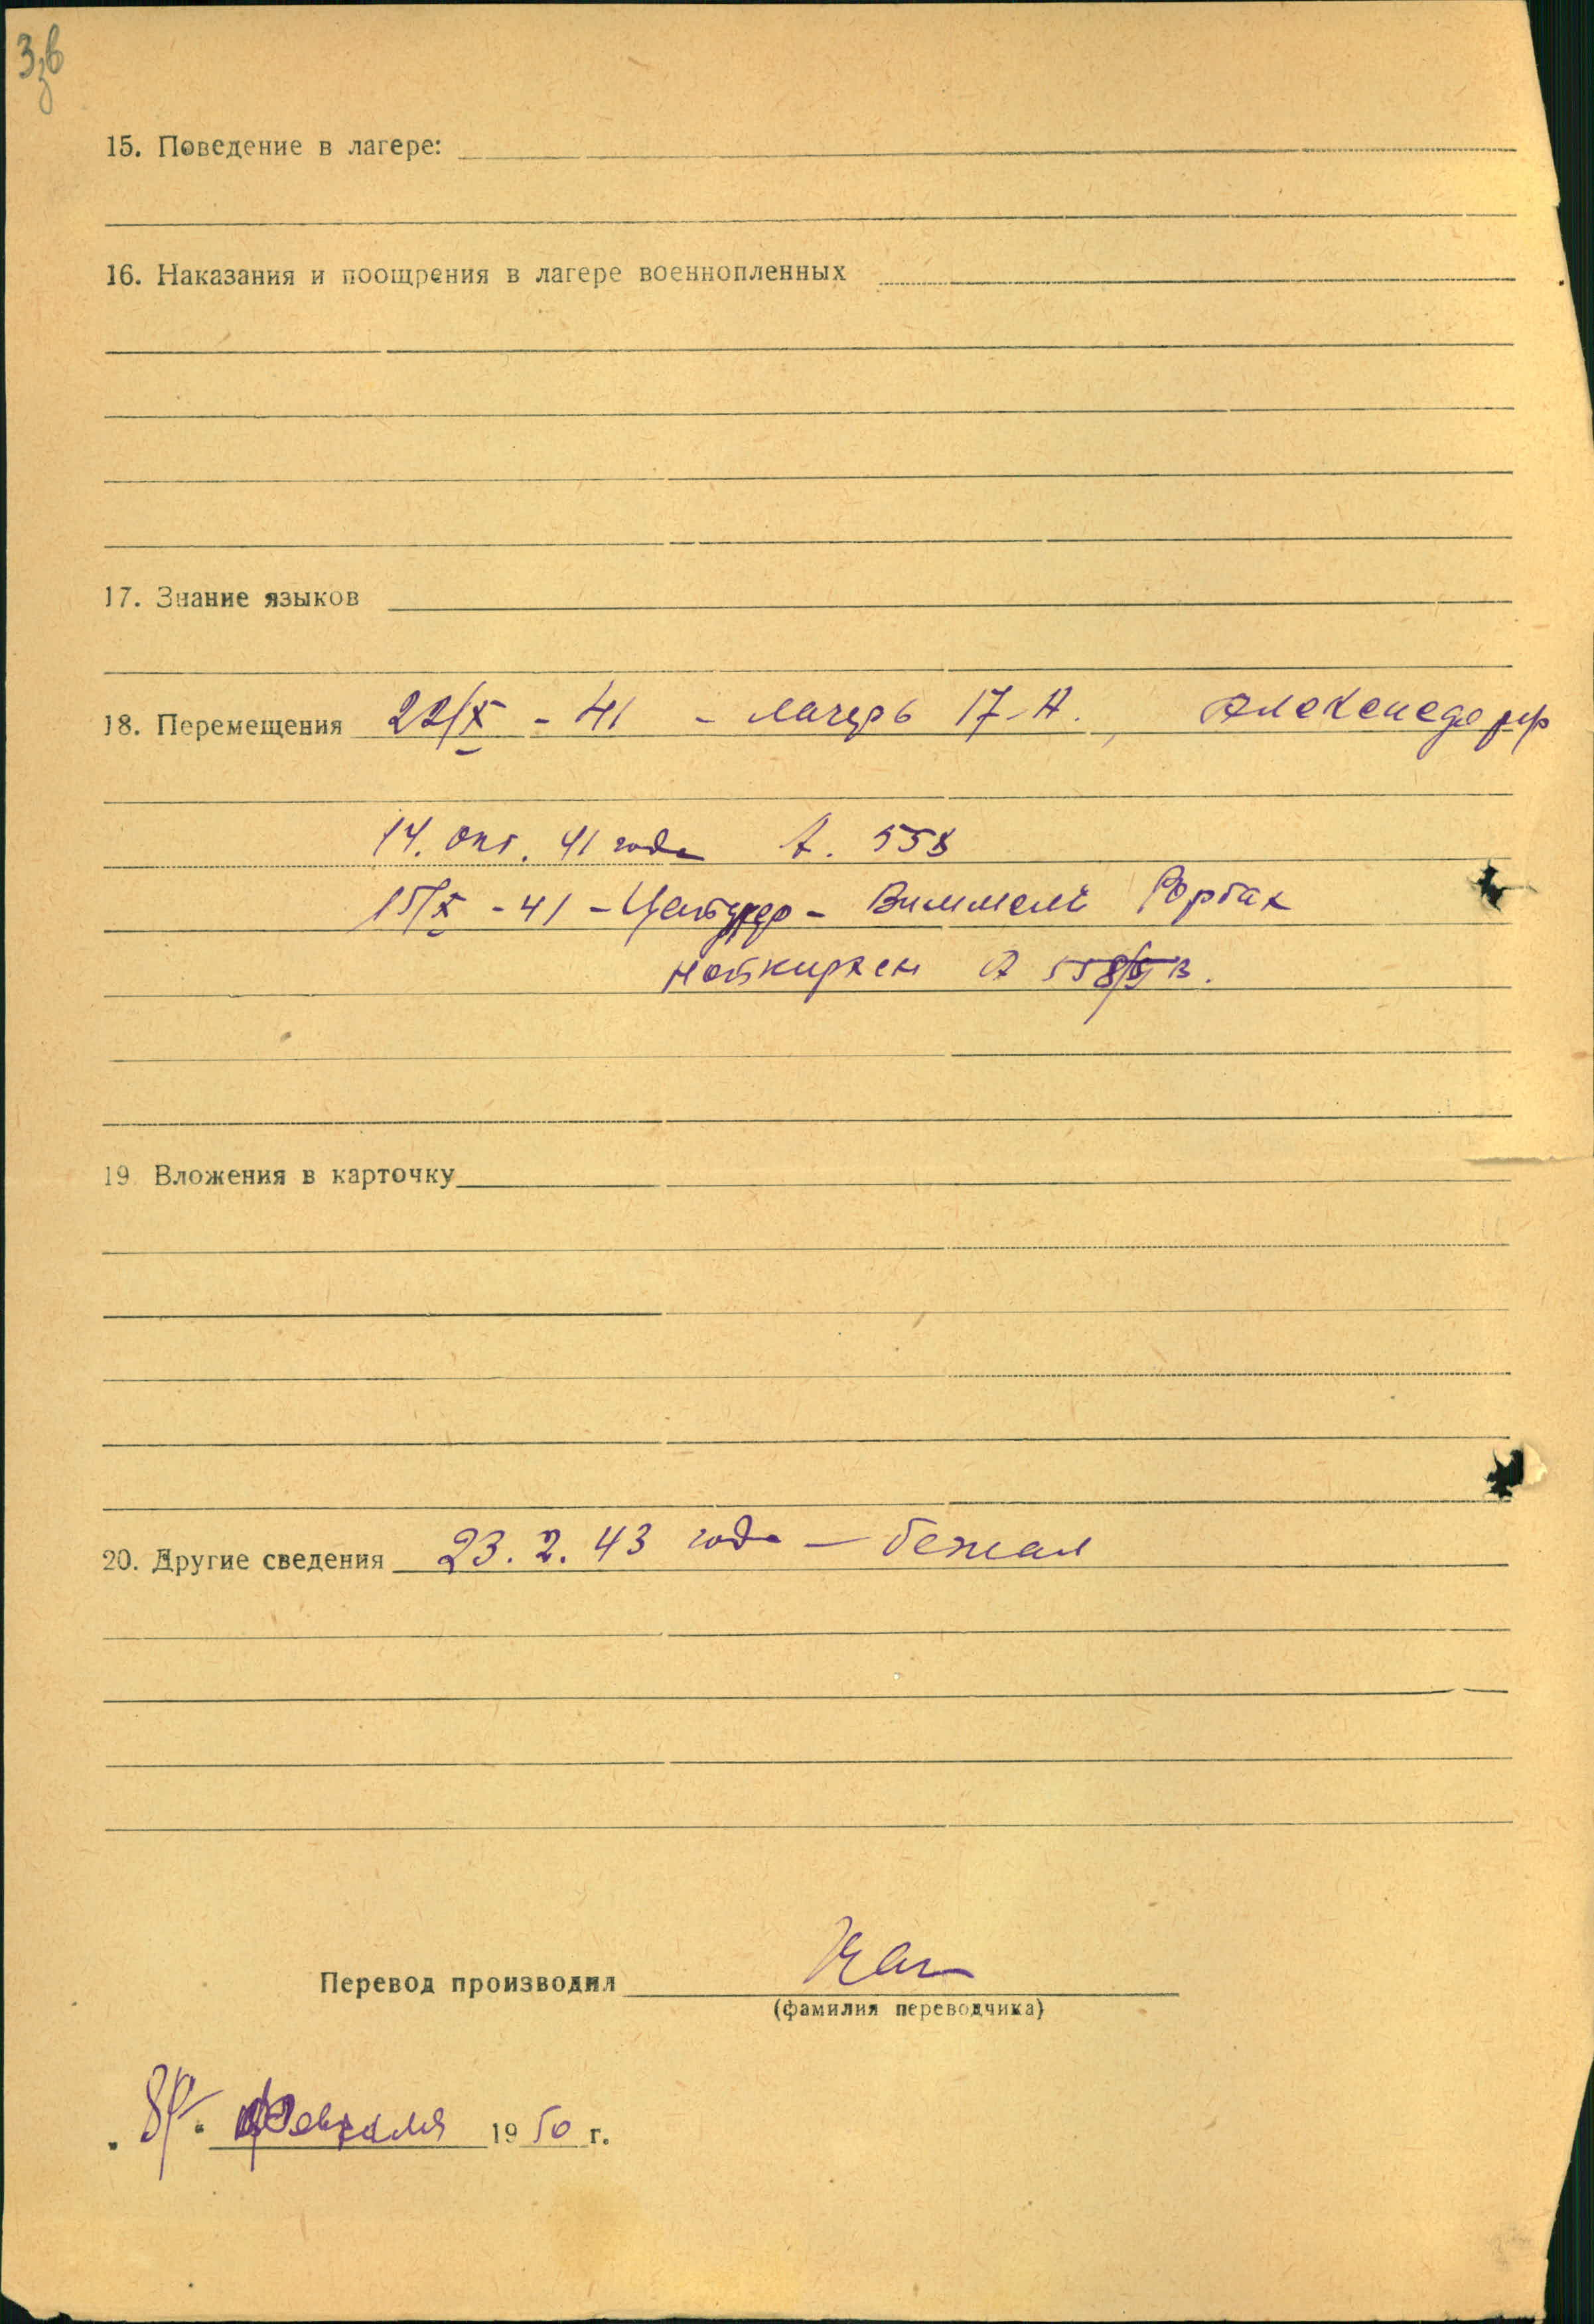 15. Поведение в лагере:
16. Наказания и поощрения в лагере военнопленных
17. Знание языков
18. Перемещения 22/X - 41 - лагерь 17-А.,
14. окт. 41 года А. 558
15/X - 41 - Виммелй Рорбах
А 558/5 В.
19. Вложения в карточку
20. Другие сведения 23. 2. 43 года — бежал
Перевод производил
(фамилия переводчика)
февраля 1950 г.